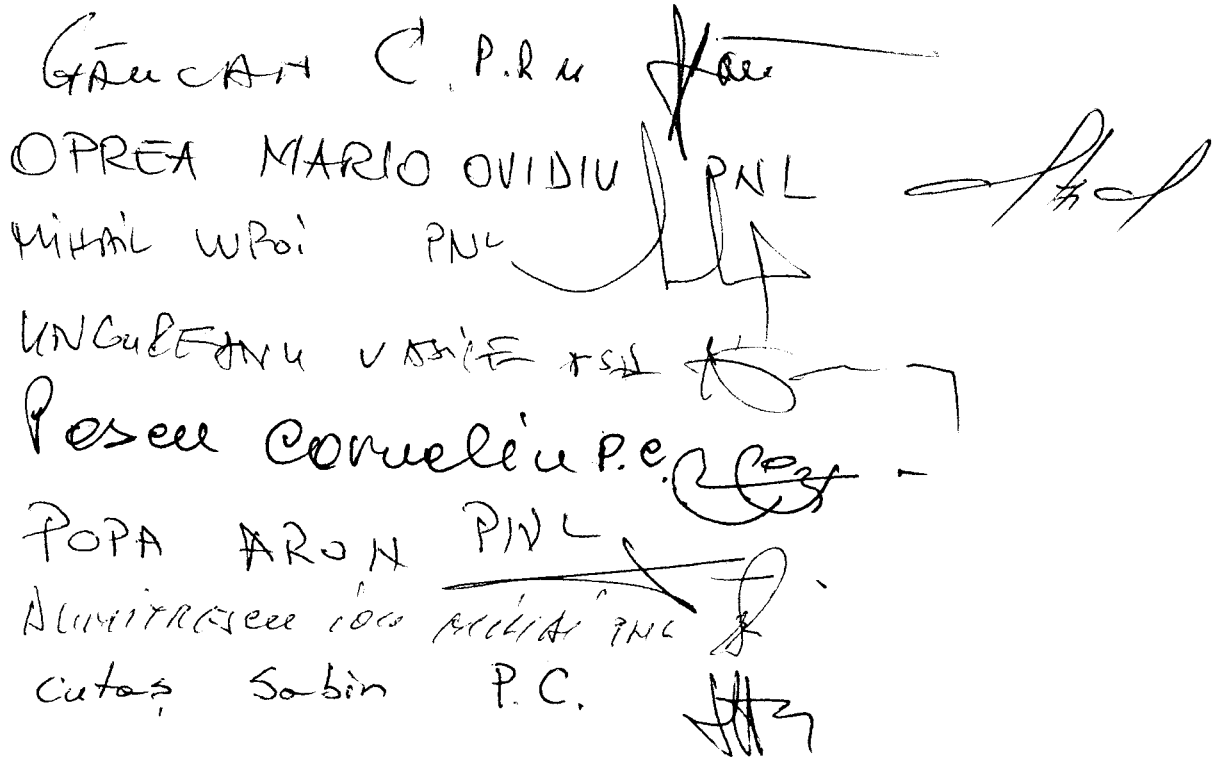 GĂUCAN C. P.R.M
OPREA MARIO OVIDIU PNL
MIHAIL LUPOI PNL
UNGUREANU VASILE PSD
Pescu Corneliu P.C.
POPA ARON PNL
DUMITRESCU ION MIHAI PNL
Cutaș Sabin P.C.